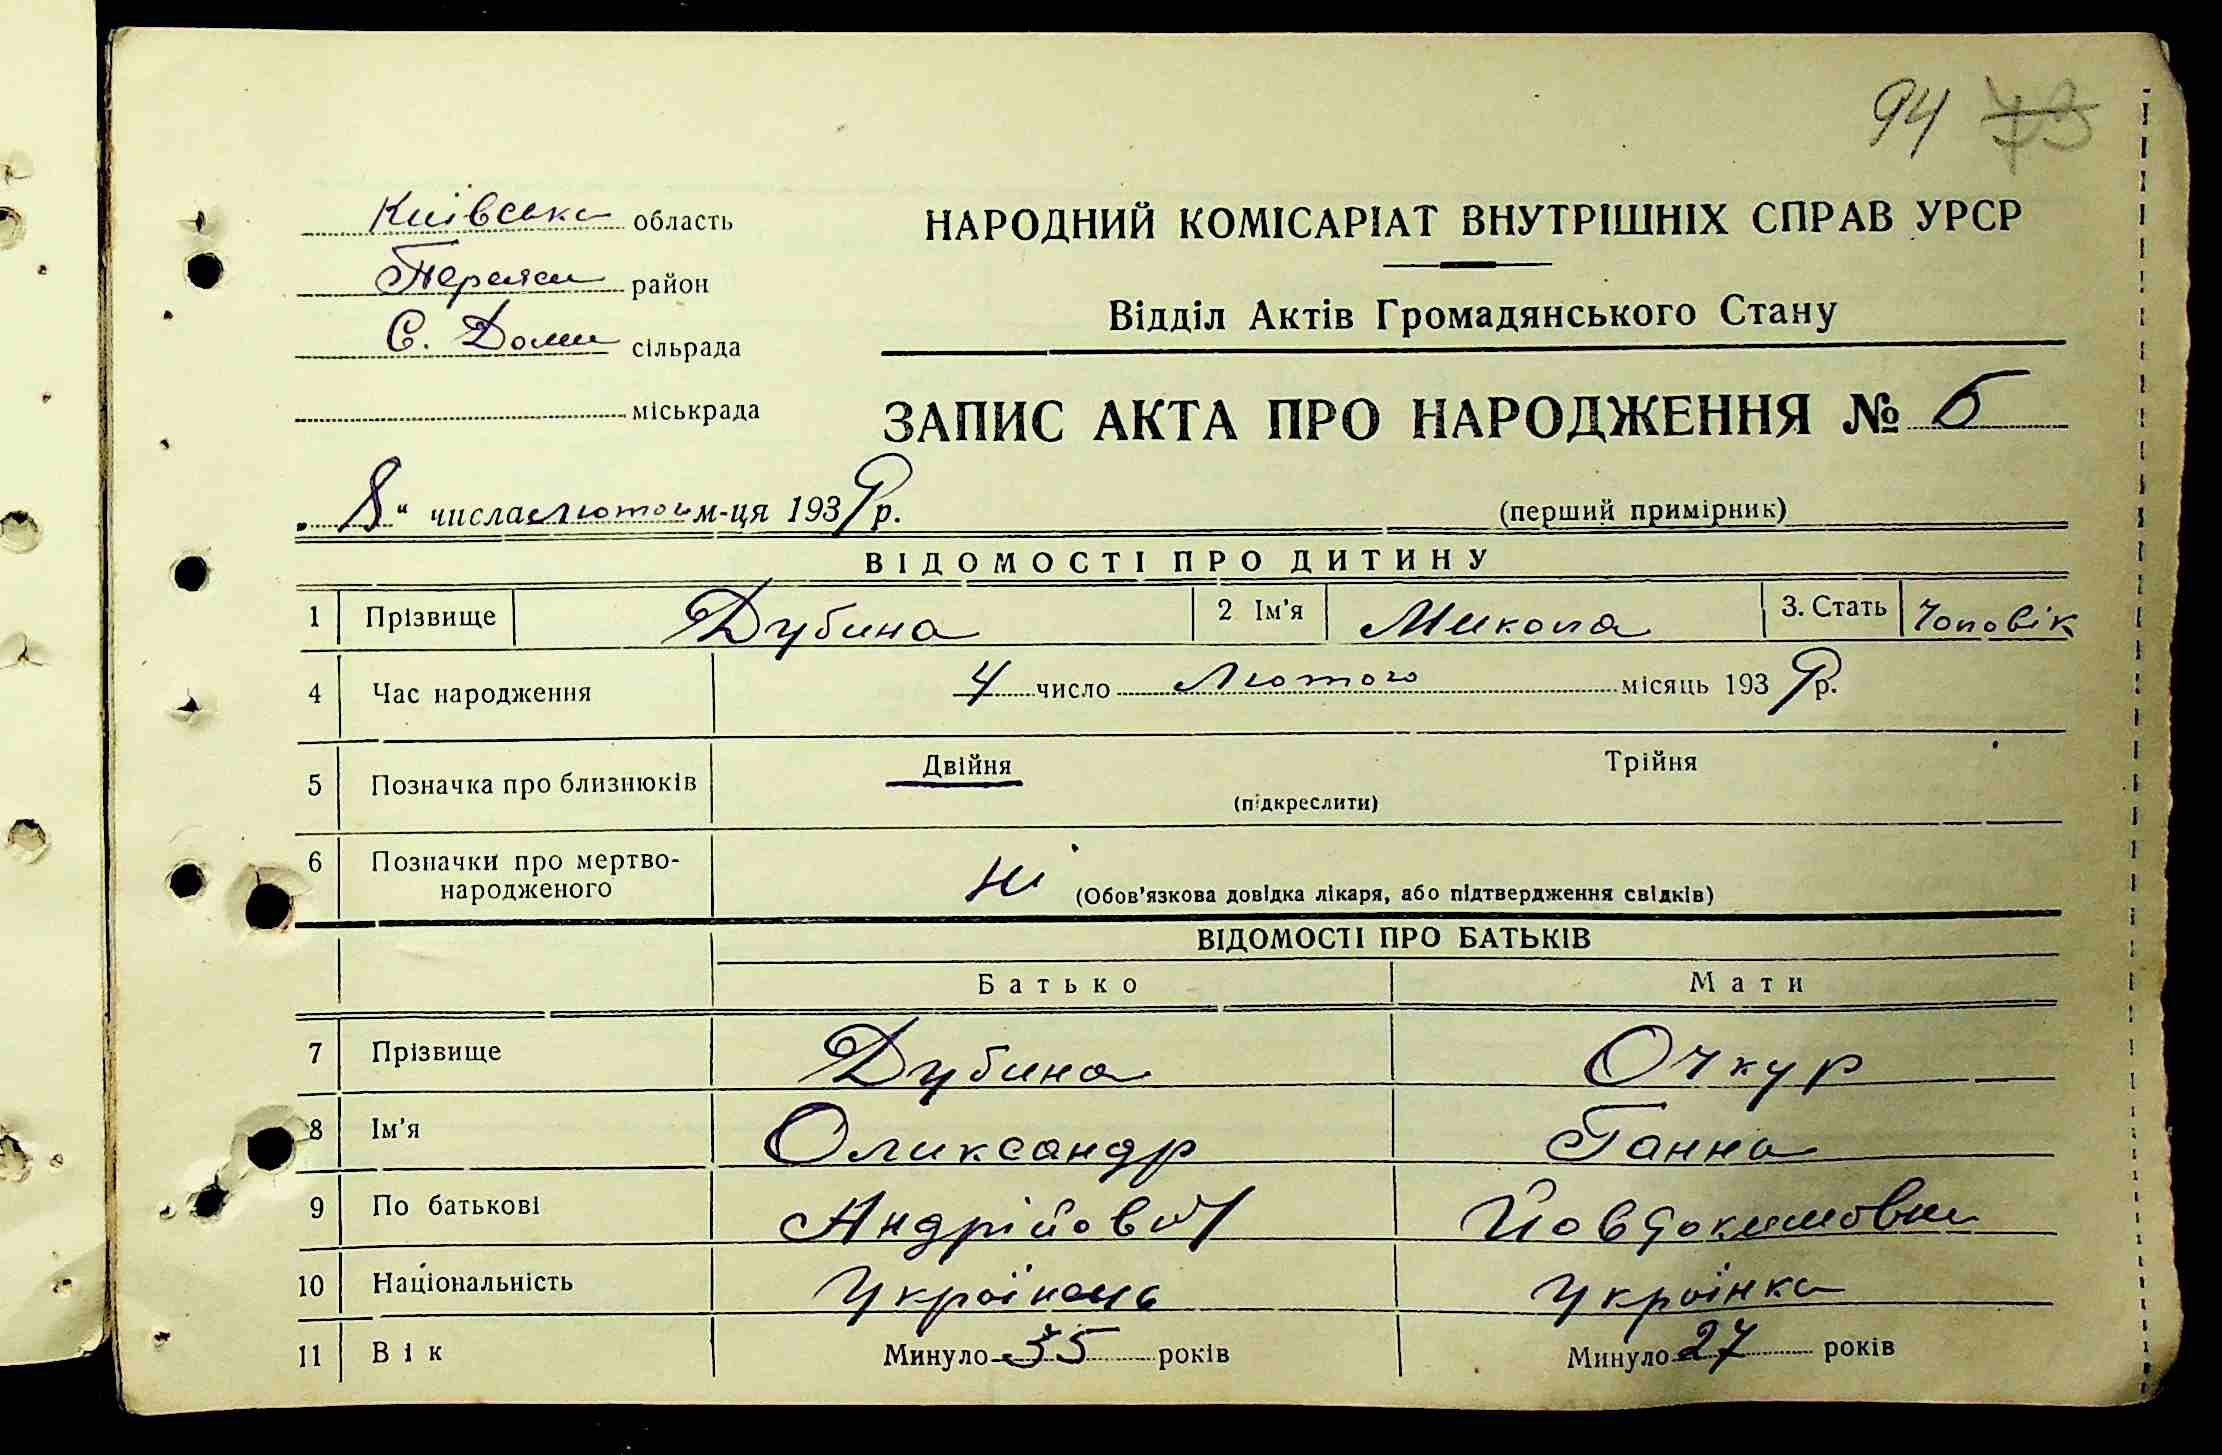 94 73
Київська область
Переясл район
С. Доми сільрада
міськрада
НАРОДНИЙ КОМІСАРІАТ ВНУТРІШНІХ СПРАВ УРСР
Відділ Актів Громадянського Стану
ЗАПИС АКТА ПРО НАРОДЖЕННЯ № 5
„8“ числа лютого м-ця 1939 р.
(перший примірник)
ВІДОМОСТІ ПРО ДИТИНУ
1 Прізвище Дубина 2 Ім'я Микола 3. Стать Чоловік
4 Час народження 4 число Лютого місяць 1939 р.
5 Позначка про близнюків Двійня Трійня
(підкреслити)
6 Позначки про мертво-
народженого Ні (Обов'язкова довідка лікаря, або підтвердження свідків)
ВІДОМОСТІ ПРО БАТЬКІВ
Батько Мати
7 Прізвище Дубина Очкур
8 Ім'я Олександр Ганна
9 По батькові Андрійович Йовдокимовна
10 Національність Українець Українка
11 Вік Минуло 35 років Минуло 27 років